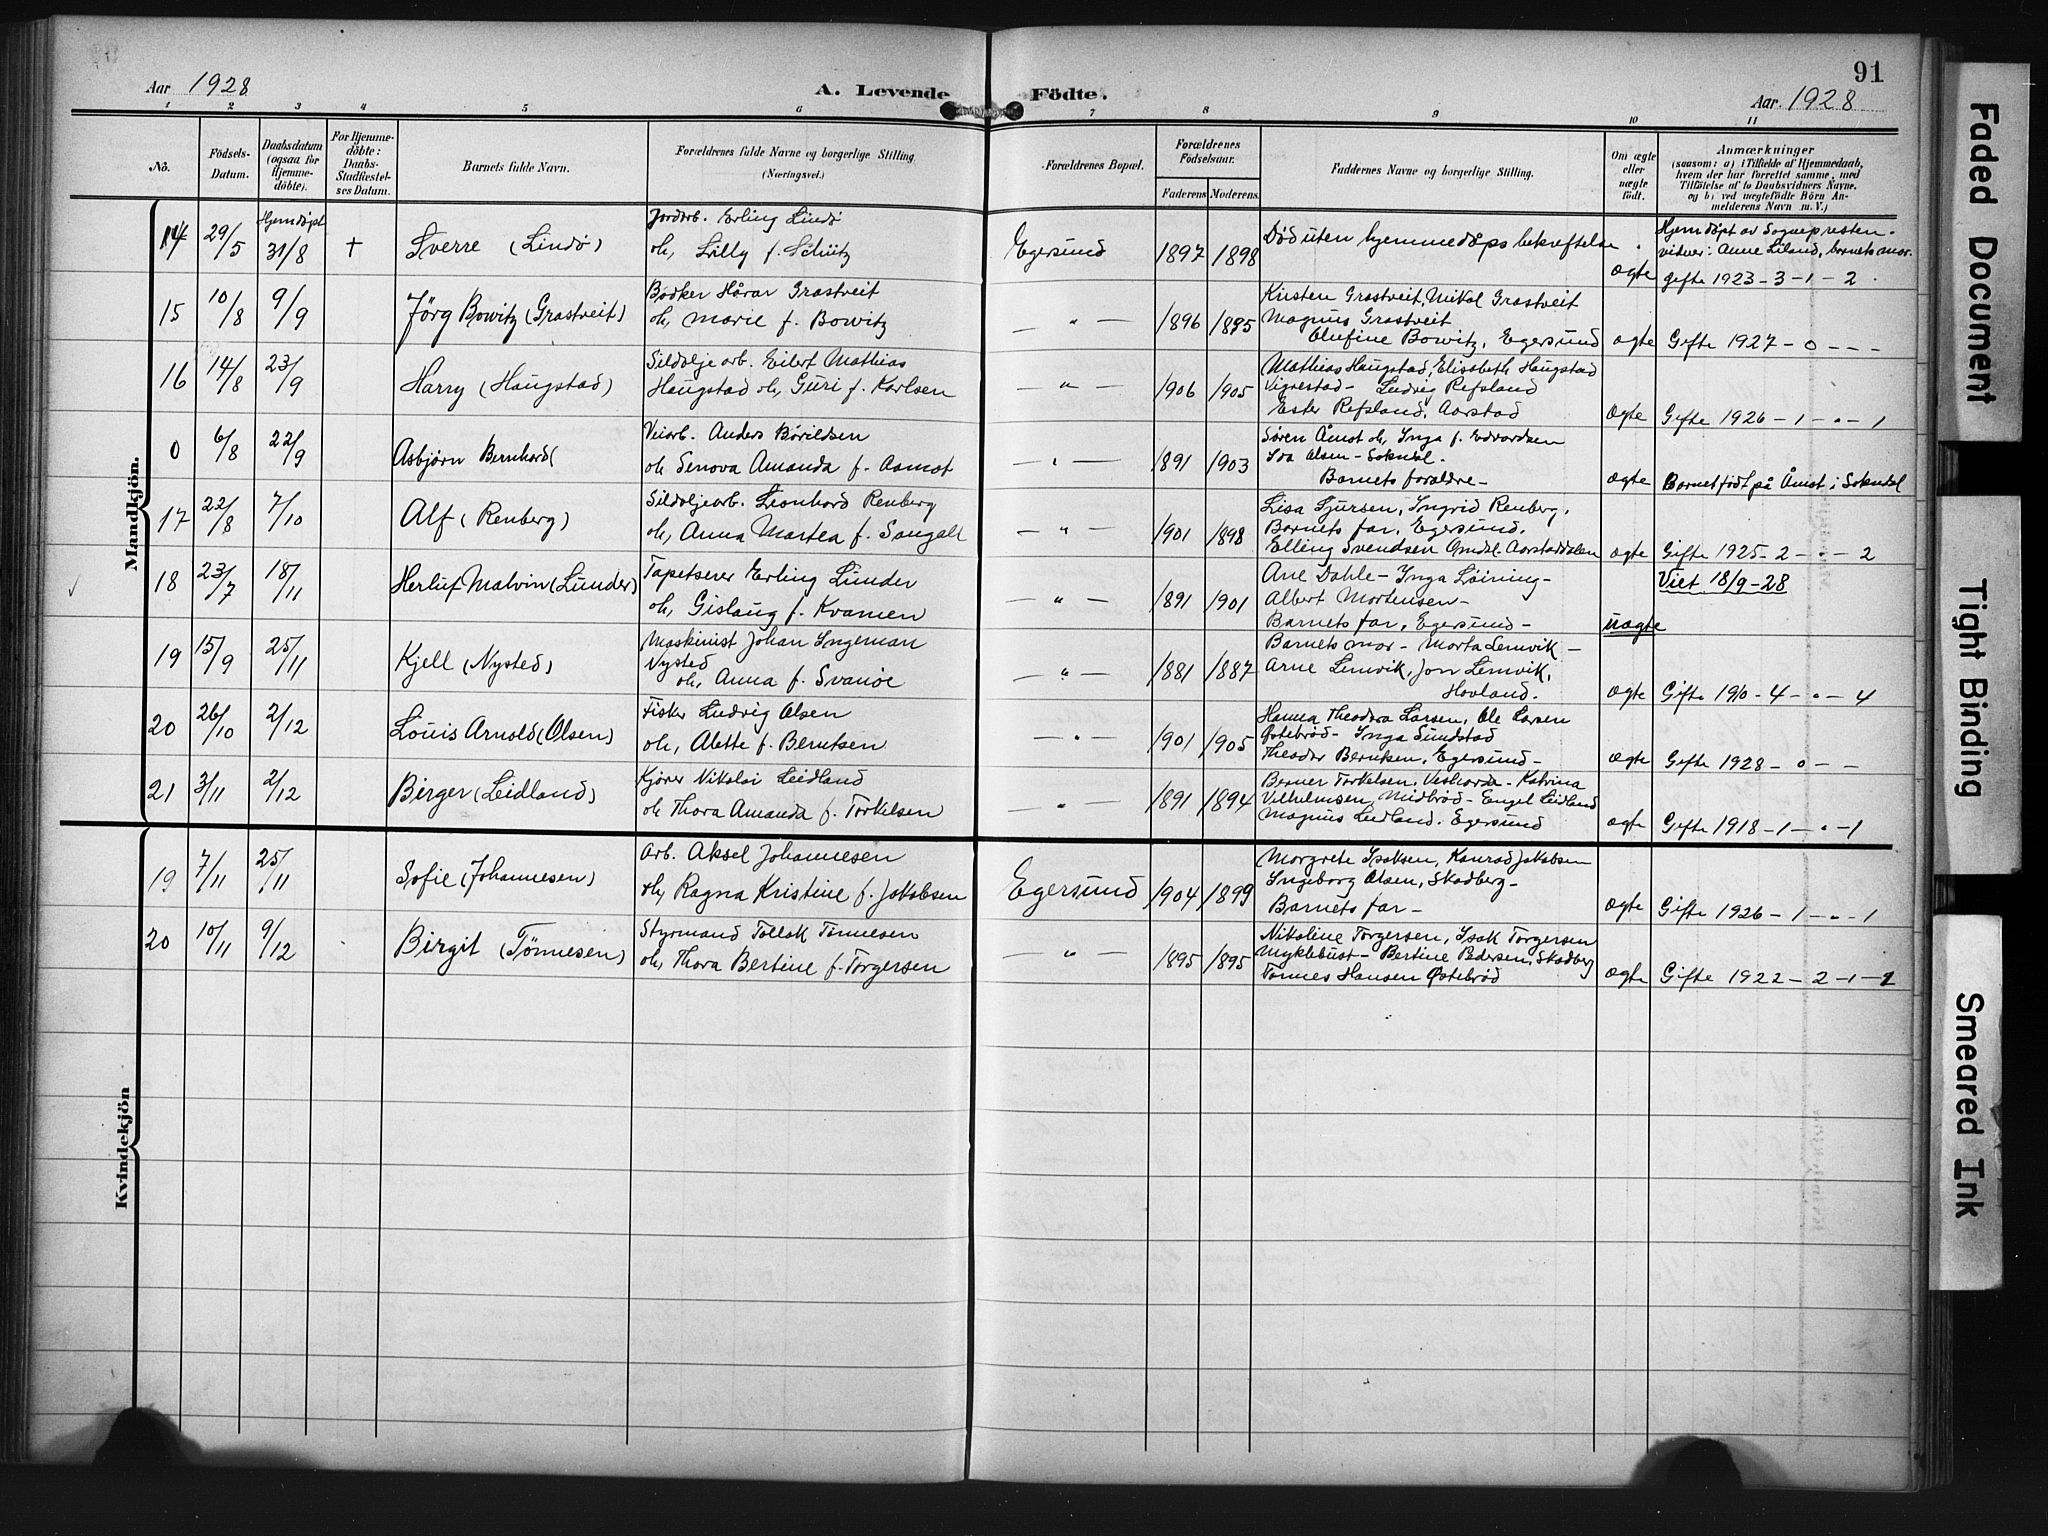 91
Aar 1928
A. Levende Födte.
Aar. 1928
1 2 3 4 5 6 7 8 9 10 11
No.
Födsels-Datum.
Daabsdatum (ogsaa for Hjemme-döbte).
For Hjemme-döbte: Daabs-Stadfæstel-ses Datum.
Barnets fulde Navn.
Forældrenes fulde Navne og borgerlige Stilling. (Næringsvei.)
Forældrenes Bopæl.
Forældrenes Födselsaar.
Faderens. Moderens.
Faddernes Navne og borgerlige Stilling.
Om ægte eller uægte födt.
Anmærkninger
(saasom: a) i Tilfælde af Hjemmedaab,
hvem der har forrettet samme, med
Tilföielse af to Daabsvidners Navne.
og b) ved uægtefödte Börn An-
melderens Navn m. V.)
Mandkjön.
14 29/5 Hjemdöpt 31/8 † Sverre (Lindö)
Jordarb. Erling Lindö
oh, Lilly f. Schütz
Egersund 1897 1898
Död uten hjemmedåps bekreftelse.
ægte
Hjemdöpt av Sognepresten.
vidner: Anne Liland, barnets mor.
gifte 1923-3-1-2.
15 10/8 9/9 Jörg Bowitz (Grastveit)
Bödker Håvar Grastveit
oh, Marie f. Bowitz
— " — 1896 1895
Kirsten Grastveit, Mikal Grastveit
Magnus Grastveit
Olufine Bowitz, Egersund
ægte Gifte 1927-0---
16 14/8 23/9 Harry (Haugstad)
Sildolje arb. Eilert Mathias
Haugstad oh, Guri f. Karlsen
— " — 1906 1905
Mathias Haugstad, Elisabeth Haugstad
Vigrestad - Ludvig Refsland
Ester Refsland, Aarstad
ægte Gifte 1926-1-"-1
0 6/8 22/9 Asbjørn Bernhard (
Veiarb. Anders Bårildsen
oh Senova Amanda f. Aamot
— " — 1891 1903
Søren Åmot oh, Inga f. Edvardsen
Iva Olsen - Sokndal.
Barnets foraldre -
ægte Barnet födt på Åmot i Sokndal
17 22/8 7/10 Alf (Renberg)
Sildoljearb. Leonhard Renberg
oh, Anna Martea f. Sangolt
— " — 1901 1898
Lisa Sjursen, Ingrid Renberg,
Barnets far, Egersund.
Elling Svendsen Omdal Aarstaddalen
ægte Gifte 1925-2-"-2
18 23/7 18/11 Herluf Malvin (Lunder)
Tapetserer Erling Lunder
oh, Gislaug f. Kvamen
— " — 1891 1901
Ane Dahle - Inga Löining -
Albert Mortensen -
Barnets far, Egersund -
uægte
Viet 18/9-28
19 15/9 25/11 Kjell (Nysted)
Maskinist Johan Ingeman
Nysted
oh, Anna f. Svanöe
— " — 1881 1887
Barnets mor - Marta Lemvik -
Arne Lemvik, Jon Lemvik,
Hovland.
ægte Gifte 1910-4-"-4
20 26/10 2/12 Louis Arnold (Olsen)
Fisker Ludvig Olsen
oh, Alette f. Berntsen
— " — 1901 1905
Hanna Theodora Larsen, Ole Larsen
Östebröd - Inga Sundstad
Theodor Berntsen, Egersund -
ægte Gifte 1928-0--
21 3/11 2/12 Birger (Leidland)
Kjører Nikolai Leidland
oh Thora Amanda f. Torkelsen
— " — 1891 1894
Berner Torkelsen, Veshovda - Katrina
Vilhelmsen, Midbröd - Engel Leidland
Magnus Leidland. Egersund
ægte Gifte 1918-1-"-1
Kvindekjön
19 7/11 25/11 Sofie (Johannesen)
Arb. Aksel Johannesen
oh, Ragna Kristine f. Jakobsen
Egersund 1904 1899
Margrete Isaksen, Konrad Jakobsen
Ingeborg Olsen, Skadberg -
Barnets far -
ægte Gifte 1926-1-"-1
20 10/11 9/12 Birgit (Tønnesen)
Styrmand Tollak Tønnesen
oh, Thora Bertine f. Torgersen
— " — 1895 1895
Nikoline Torgersen, Isak Torgersen
Myklebust - Bertine Pedersen, Skadberg
Tønnes Hansen Østebröd
ægte Gifte 1922-2-1-1
Faded Document
Tight Binding
Smeared Ink